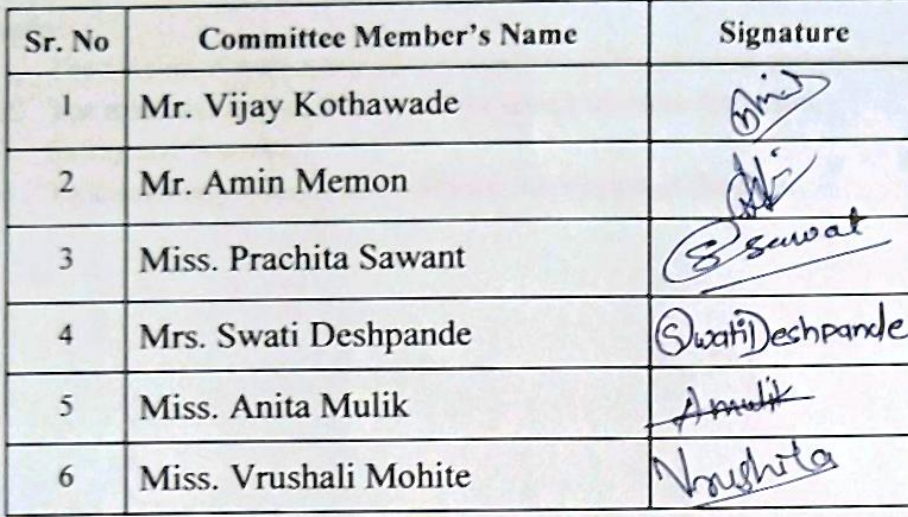 Sr. No Committee Member's Name Signature
1 Mr. Vijay Kothawade
2 Mr. Amin Memon
3 Miss. Prachita Sawant Sawat
4 Mrs. Swati Deshpande Swati Deshpande
5 Miss. Anita Mulik Amulik
6 Miss. Vrushali Mohite Vrushita